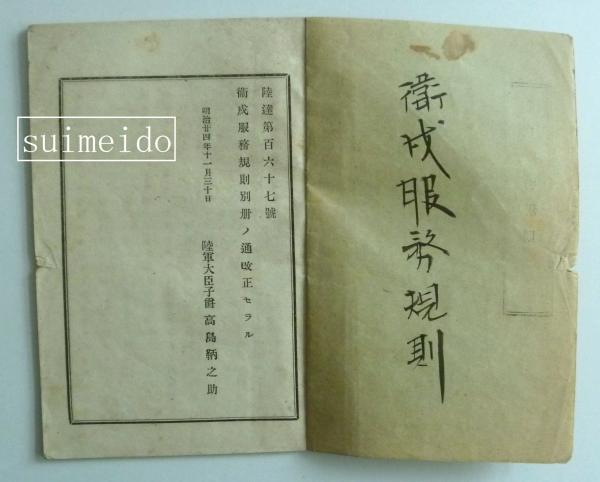 衞戍服務規則
陸達第百六十七號
衞戍服務規則別册ノ通改正セラル
明治廿四年十一月三十日
陸軍大臣子爵高島鞆之助
suimeido